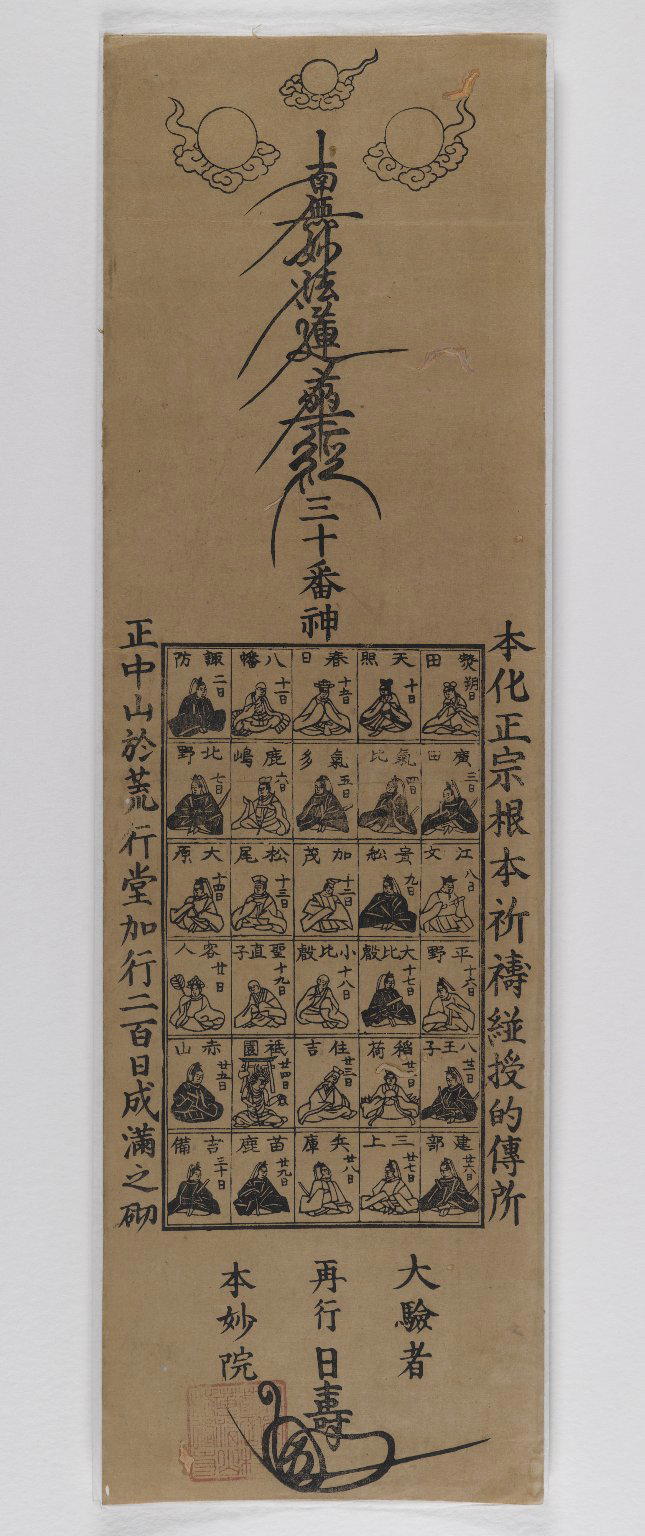 南無妙法蓮華經
三十番神
本化正宗根本祈禱授的傳所
熱田 朔日
天照 十日
春日 十五日
八幡 十一日
諏防 二日
廣田 三日
氣比 四日
氣多 五日
鹿嶋 六日
北野 七日
江文 八日
貴舩 九日
加茂 十二日
松尾 十三日
大原 十四日
平野 十六日
大比叡 十七日
小比叡 十八日
聖直子 十九日
客人 廿日
八王子 廿一日
稲荷 廿二日
住吉 廿三日
祇園 廿四日
赤山 廿五日
建部 廿六日
三上 廿七日
兵庫 廿八日
苗鹿 廿九日
吉備 三十日
正中山於荒行堂加行二百日成滿之砌
大驗者
再行日壽
本妙院